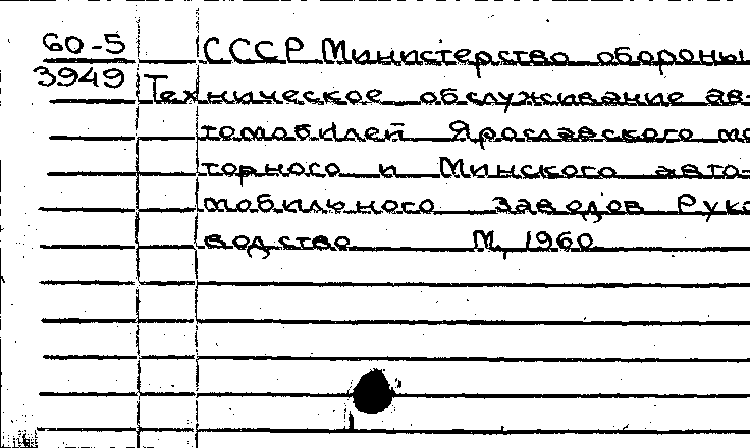 60-5 СССР Министерство обороны
3949 Техническое обслуживание ав-
томобилей Ярославского мо
торного и Минского авто-
мобильного заводов Руко
водство М, 1960